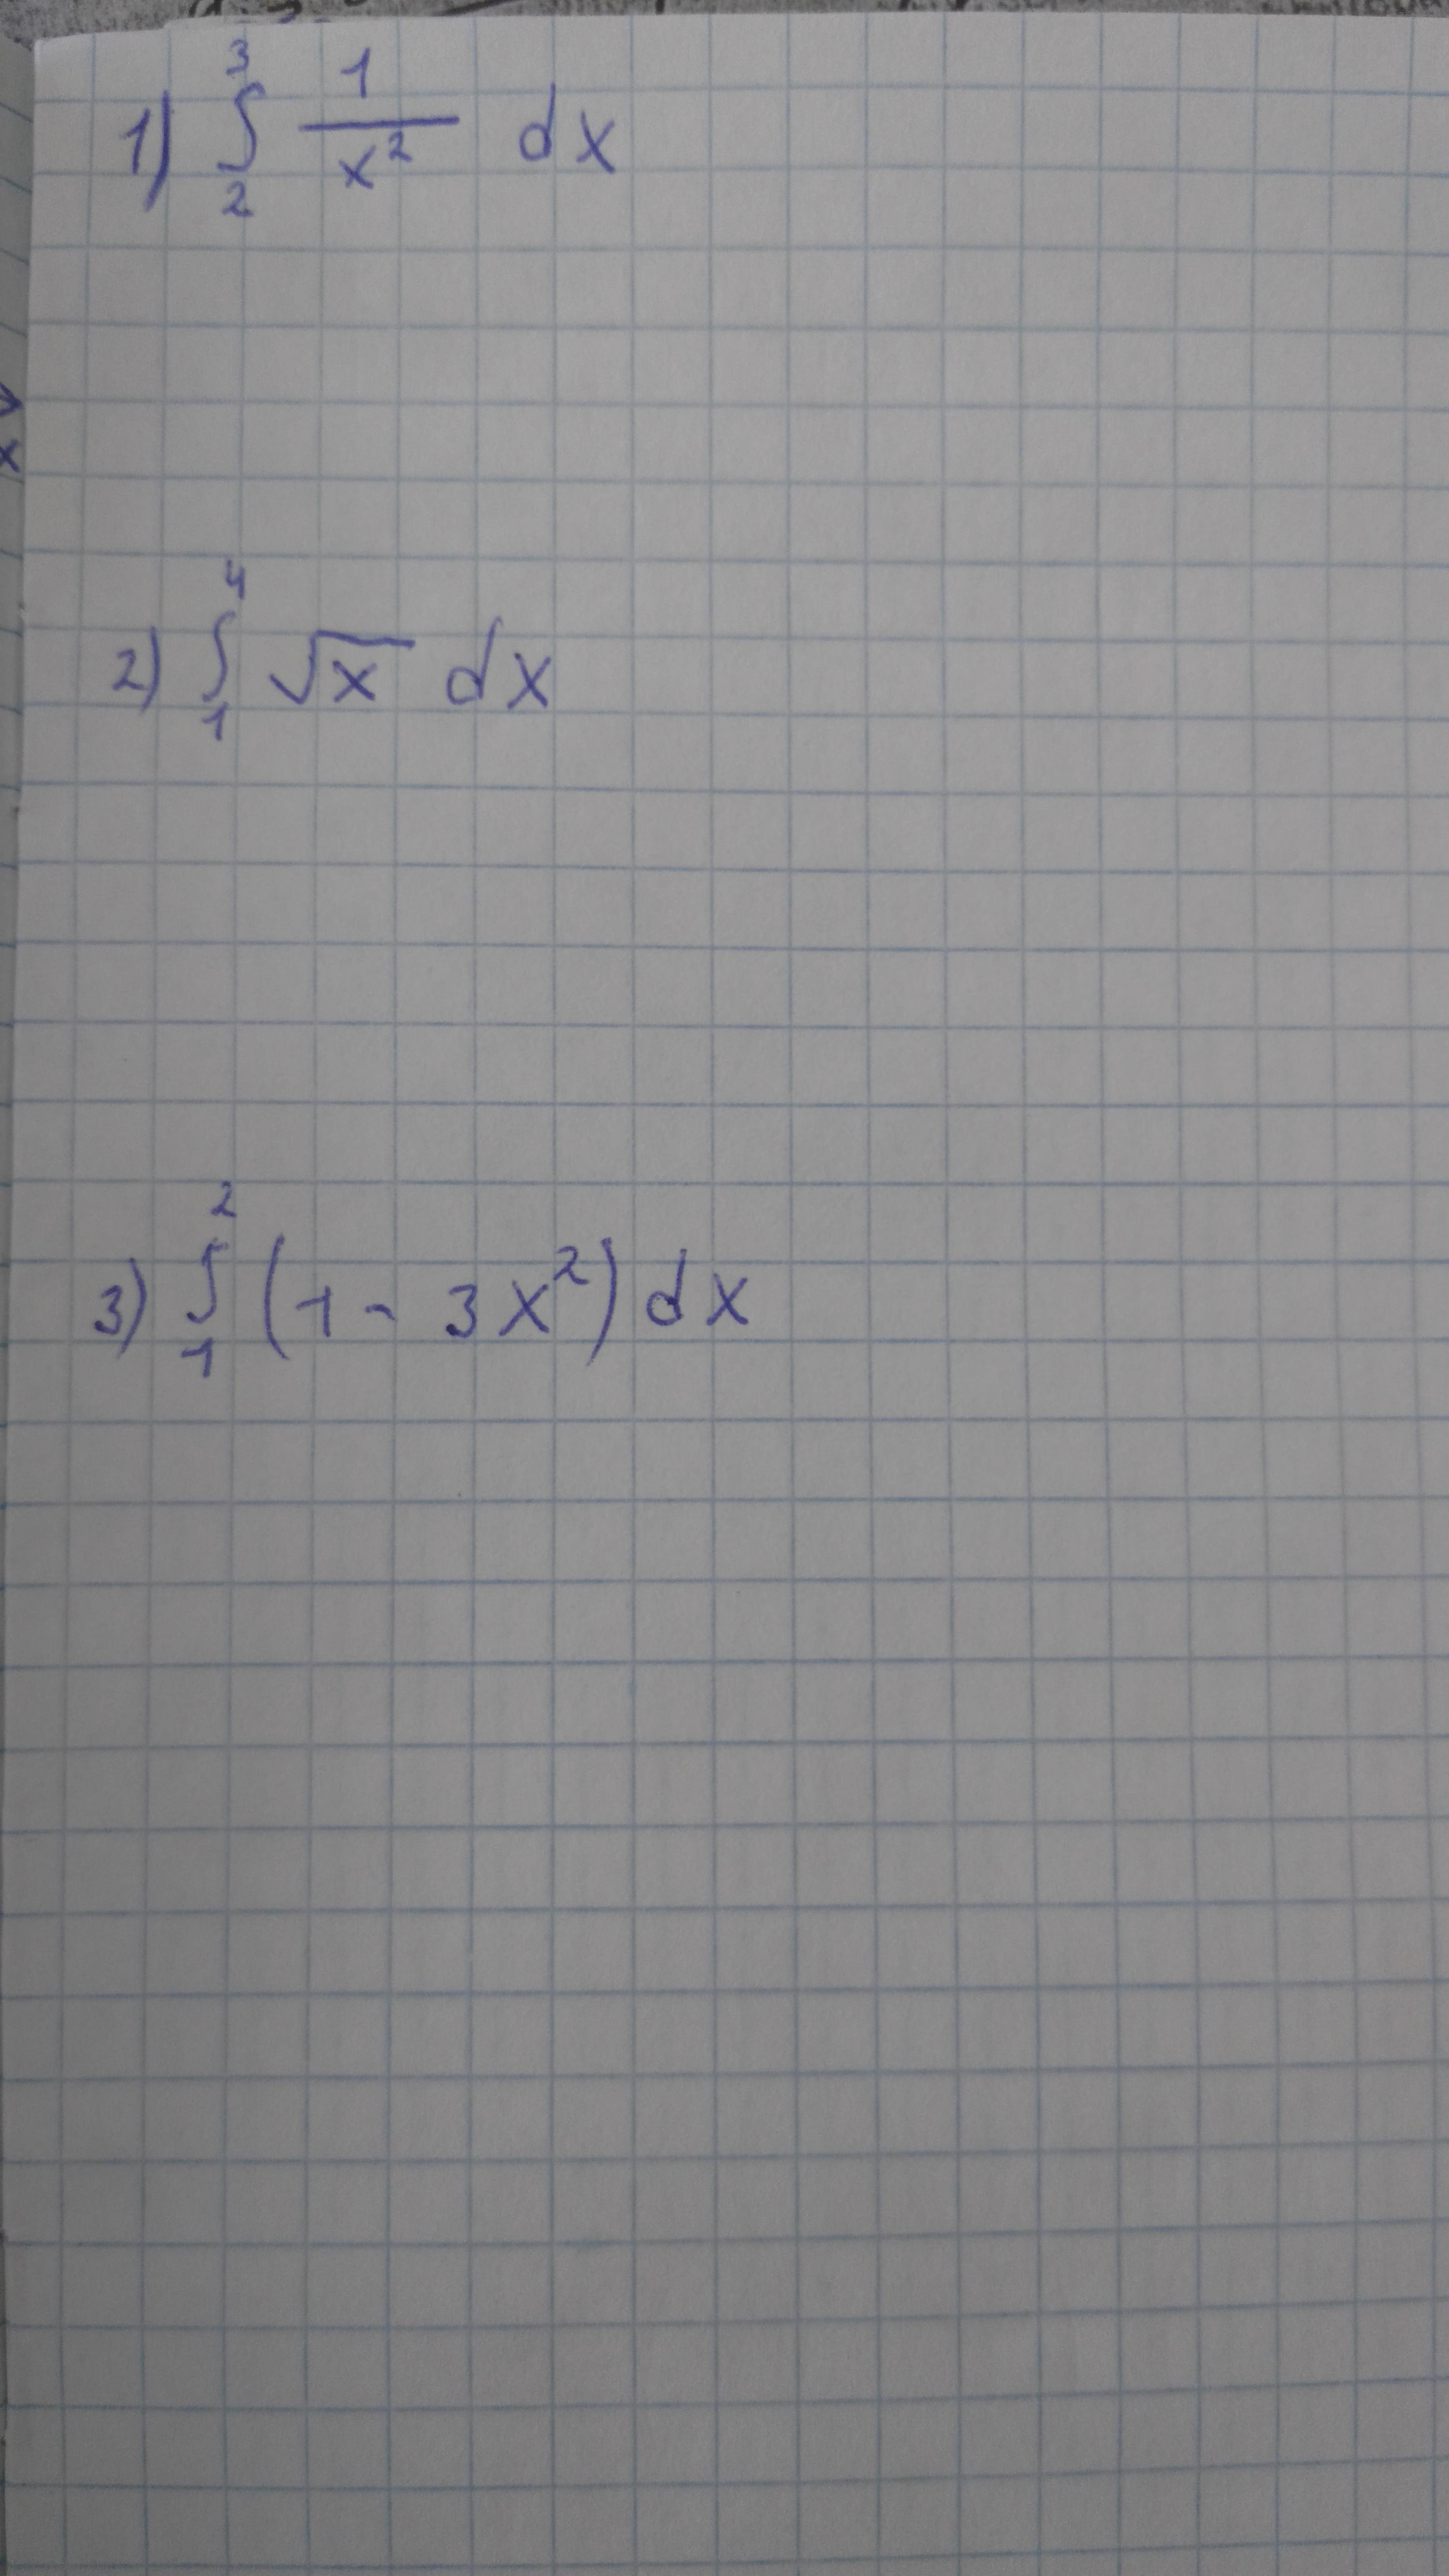 1) ∫₂³ 1/x² dx
2) ∫₁⁴ √x dx
3) ∫₁² (1 - 3x²) dx